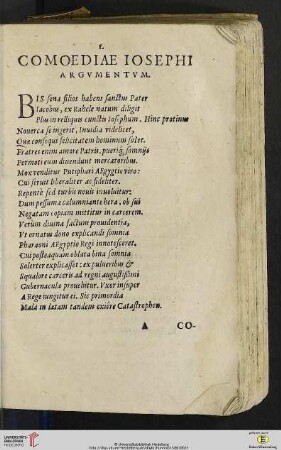 1.
COMOEDIAE IOSEPHI
ARGVMENTVM.
BIS sena filios habens sanctus Pater
Iacobus, ex Rahele natum diligit
Plus in reliquis cunctis Iosephum. Hinc protinus
Nouerca se ingerit, Inuidia videlicet,
Quae consequi felicitatem hominum solet.
Fratres enim amore Patris, pueriq́; somnijs
Permoti eum diuendunt mercatoribus.
Mox venditur Putiphari AEgyptio viro:
Cui seruit liberaliter ac fideliter.
Repentè sed turbis nouis inuoluitur:
Dum pessuma calumniante hera, ob sui
Negatam copiam mittitur in carcerem.
Verùm diuina factum prouidentia,
Vt ornatus dono explicandi somnia
Pharaoni AEgyptio Regi innotesceret.
Cui postea quam oblata bina somnia
Solerter explicasset: ex pulueribus &
Squalore carceris ad regni augustissimi
Gubernacula prouehitur. Vxor insuper
A Rege iungitur ei. Sic primordia
Mala in laetam tandem exiêre Catastrophen.
A CO-
UNIVERSITÄTS-
BIBLIOTHEK
HEIDELBERG
© Universitätsbibliothek Heidelberg